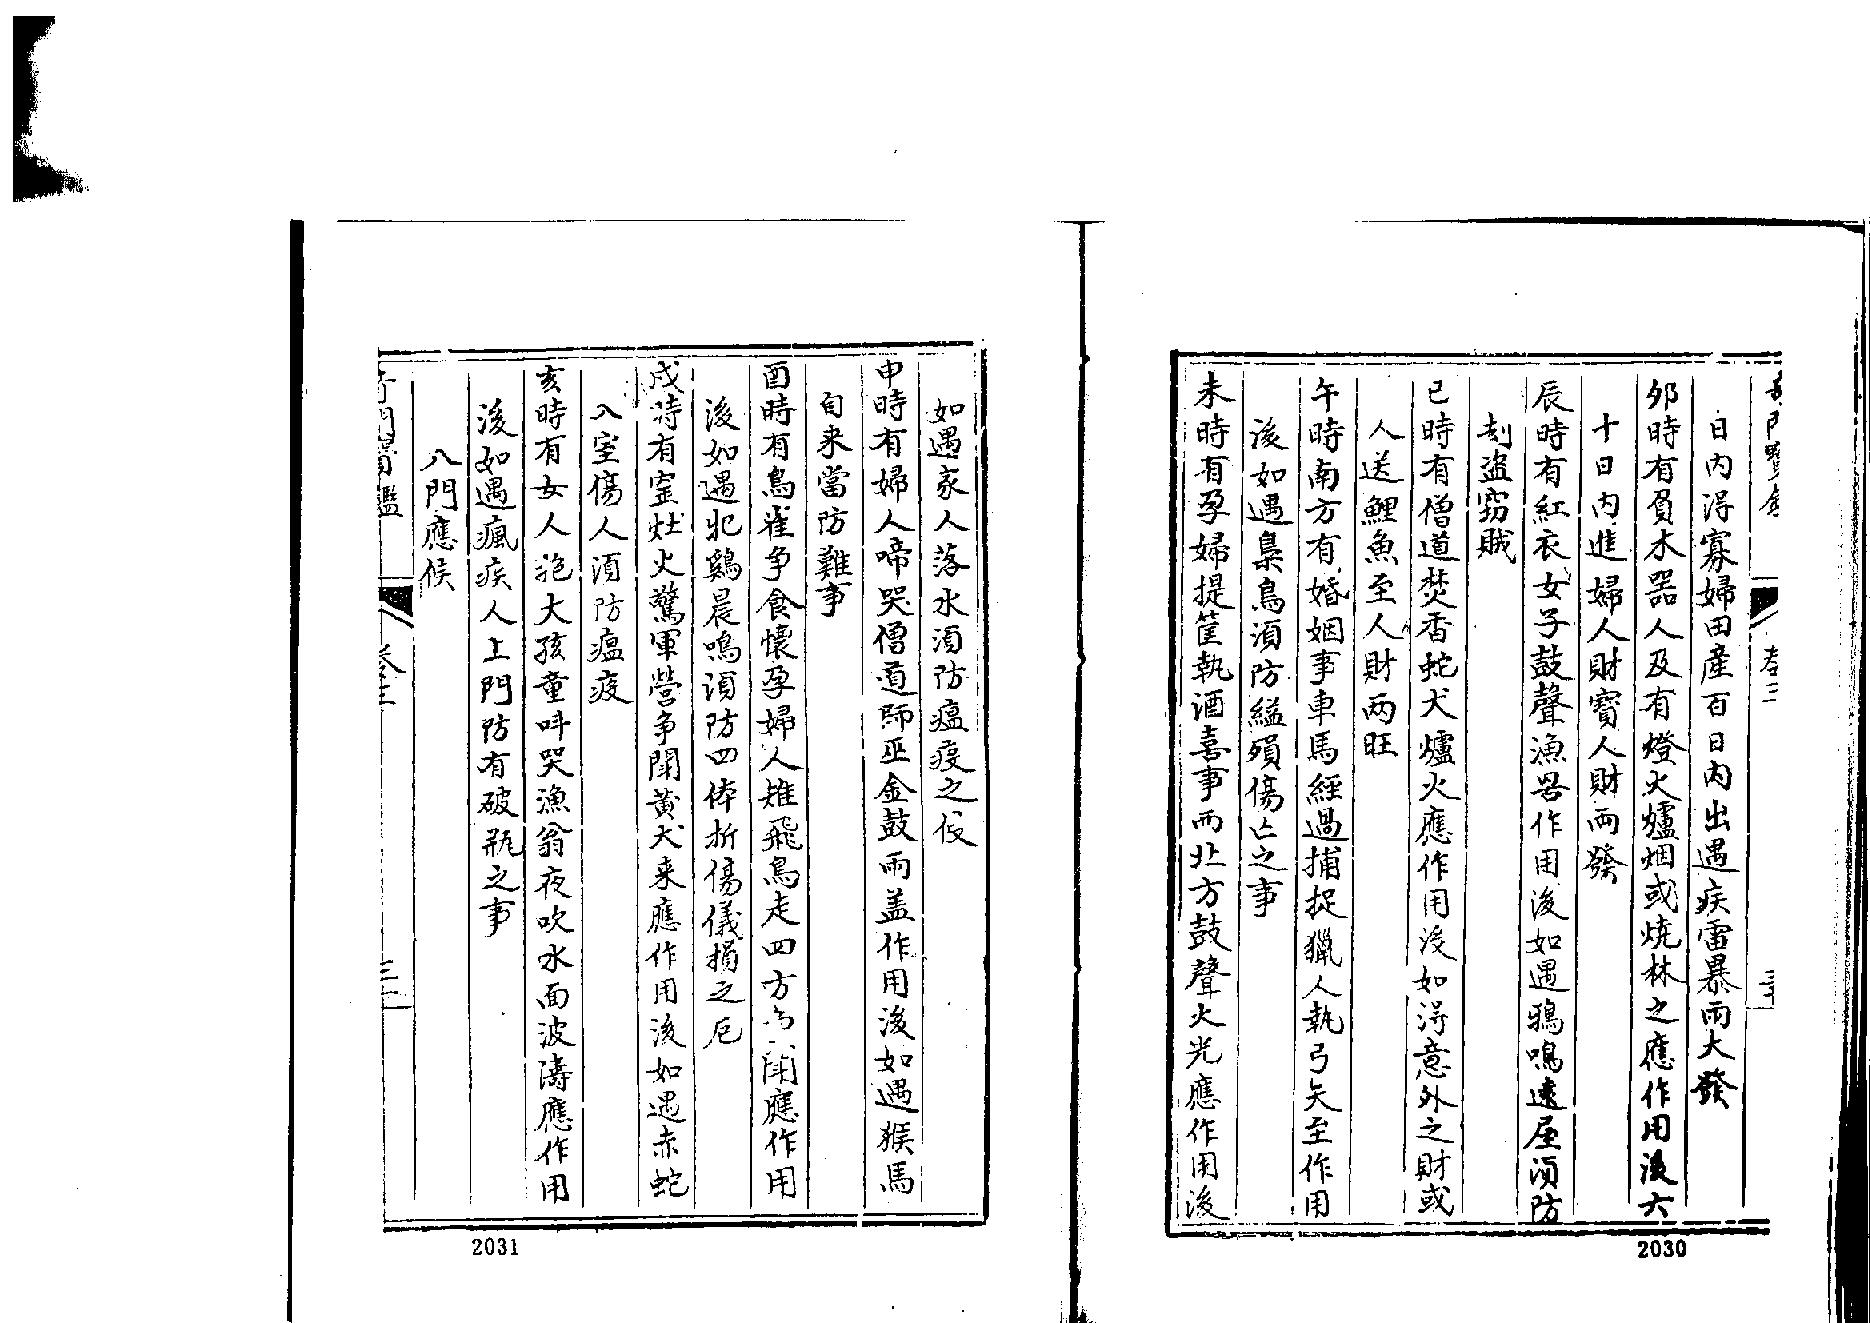 卷三
日內淂寡婦田産百日內出遇疾雷暴雨大發
夘時有負木器人及有燈火爐烟或燒林之應作用後六
十日內進婦人財寳人財兩發
辰時有紅衣女子鼓聲漁罟作用後如遇鴉鳴遠屋湏防
刦盗窃賊
巳時有僧道焚香蛇犬爐火應作用後如淂意外之財或
人送鯉魚至人財两旺
午時南方有婚姻事車馬經過捕捉獵人執弓矢至作用
後如遇梟鳥湏防縊殞傷亡之事
未時有孕婦提筐執酒喜事西北方鼓聲火光應作用後
2030
如遇家人落水湏防瘟疫之
申時有婦人啼哭僧道師巫金鼓雨盖作用後如遇猴馬
自来當防難事
酉時有鳥雀争食懷孕婦人雉飛鳥走四方 鬧應作用
後如遇牝鷄晨鳴湏防四体折傷儀損之厄
戌時有窰灶火驚軍營争鬧黄犬来應作用後如遇赤蛇
入室傷人湏防瘟疫
亥時有女人抱大孩童呌哭漁翁夜吹水面波濤應作用
後如遇瘋疾人上門防有破瓶之事
八門應候
奇門寳鑑
卷三
2031